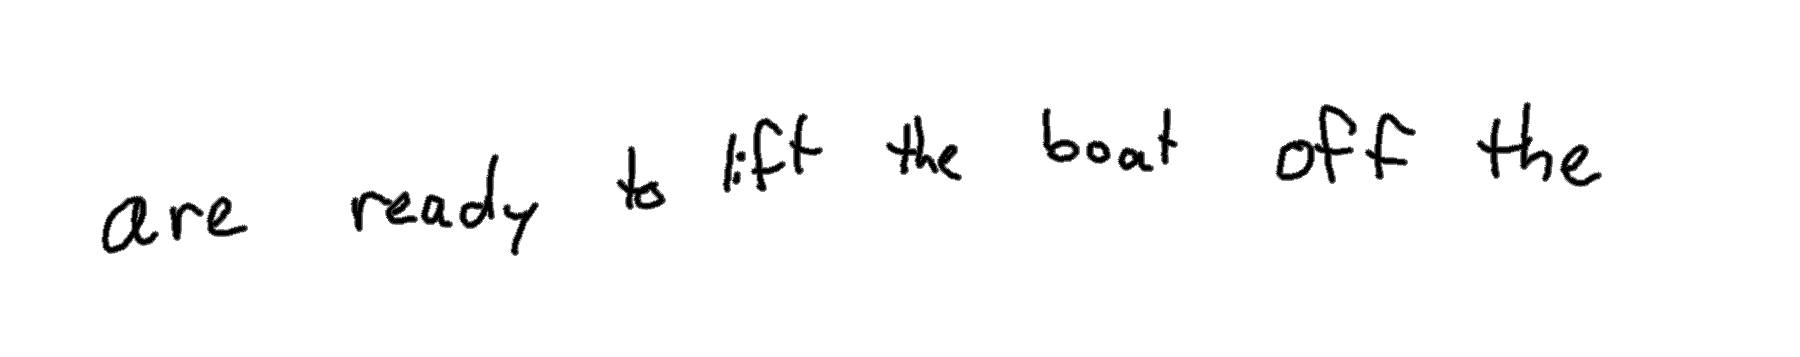 are ready to lift the boat off the